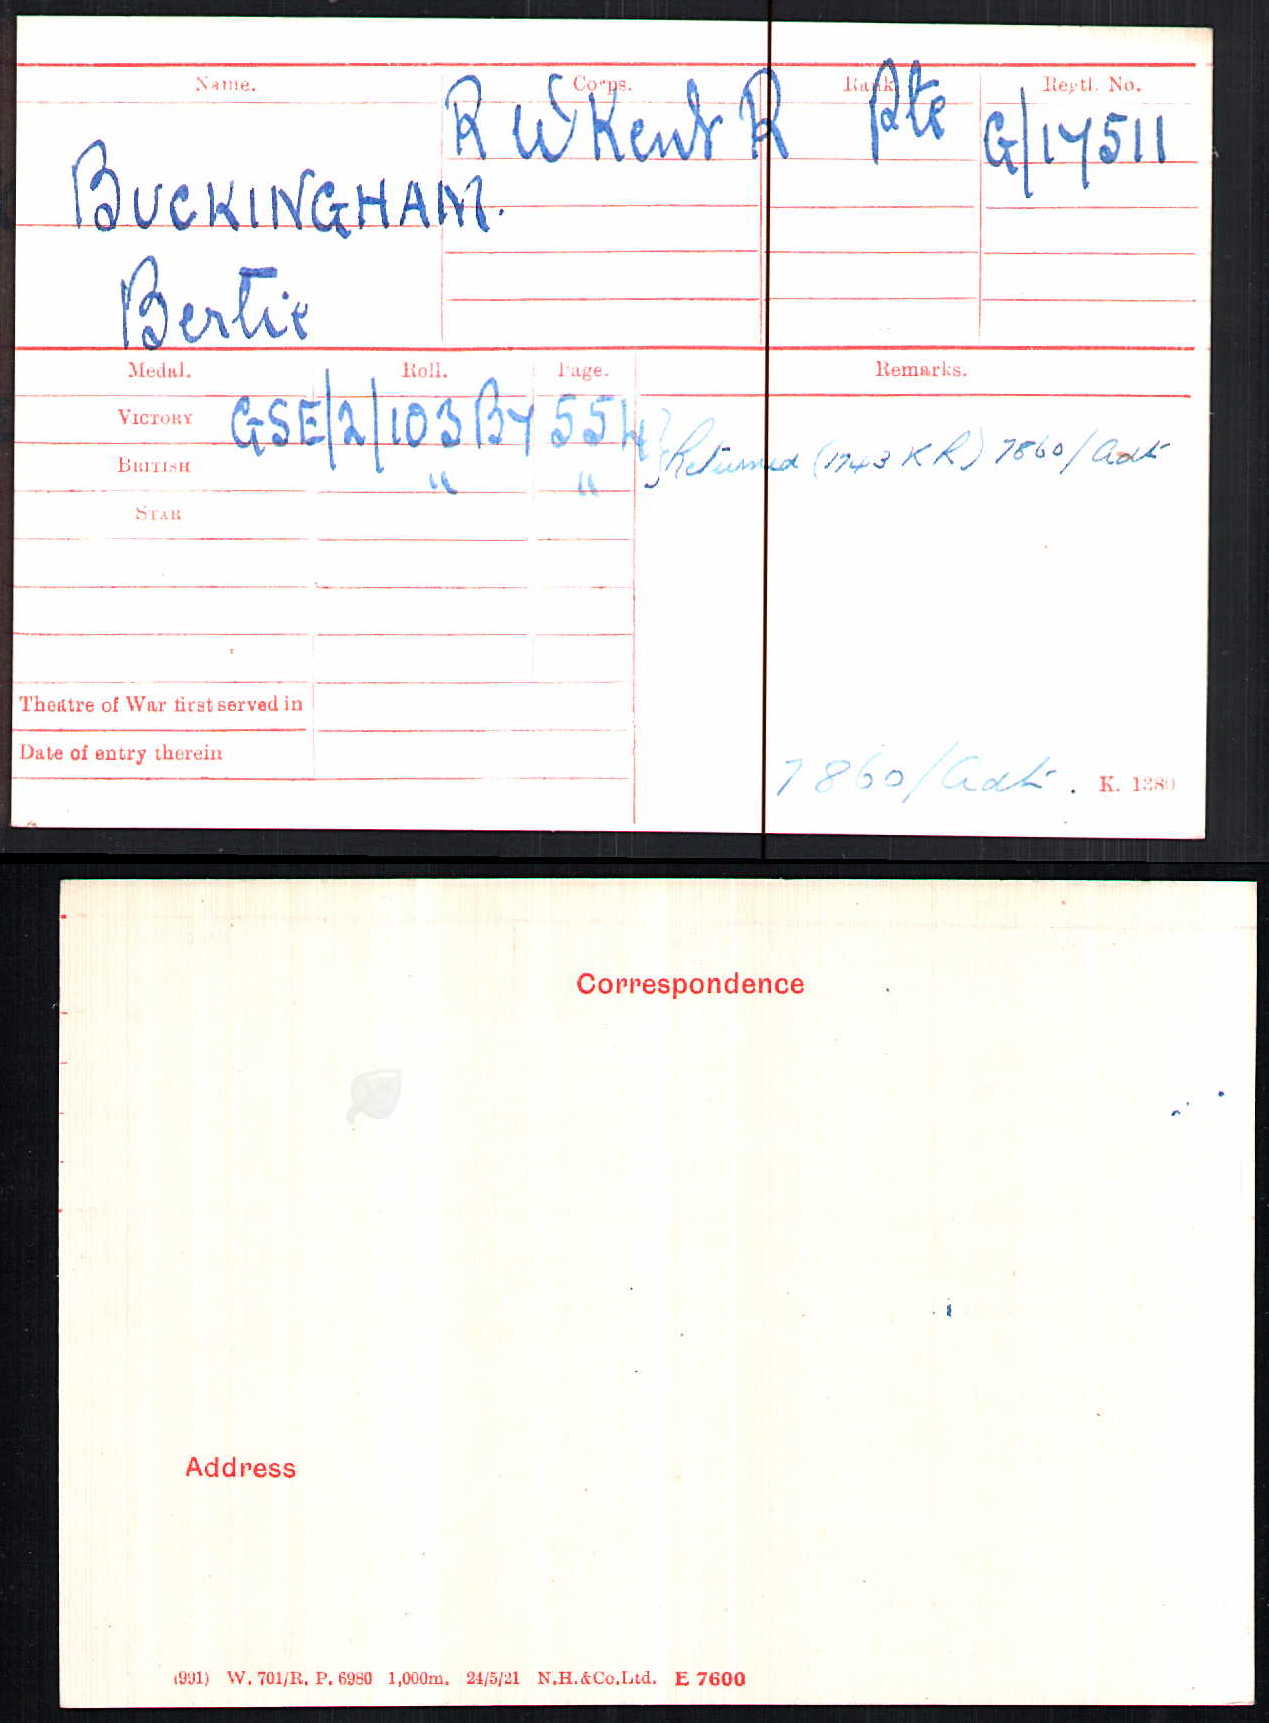 Name. Corps. Rank Regtl. No.
R W Kent R Pte G/17511
BUCKINGHAM.
Bertie
Medal. Roll. Page. Remarks.
VICTORY GSE/2/103B7 554 Returned (1743 KR) 7860/Adt
BRITISH " "
STAR
Theatre of War first served in
Date of entry therein
7860/Adt. K. 1380
Correspondence
Address
(991) W. 701/R. P. 6980 1,000m. 24/5/21 N.H.&Co.Ltd. E 7600